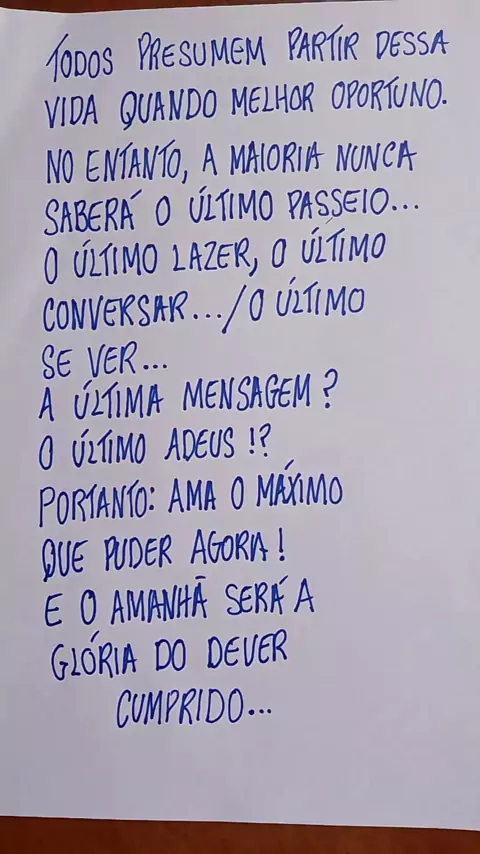 TODOS PRESUMEM PARTIR DESSA
VIDA QUANDO MELHOR OPORTUNO.
NO ENTANTO, A MAIORIA NUNCA
SABERÁ O ÚLTIMO PASSEIO...
O ÚLTIMO LAZER, O ÚLTIMO
CONVERSAR.../O ÚLTIMO
SE VER...
A ÚLTIMA MENSAGEM?
O ÚLTIMO ADEUS!?
PORTANTO: AMA O MÁXIMO
QUE PUDER AGORA!
E O AMANHÃ SERÁ A
GLÓRIA DO DEVER
CUMPRIDO...